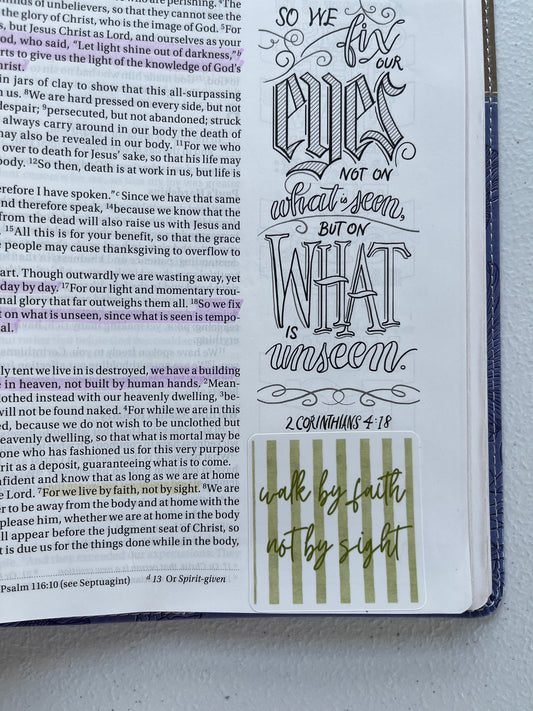 inds of unbelievers, so that they cannot see the
the glory of Christ, who is the image of God. ⁵For
s, but Jesus Christ as Lord, and ourselves as your
od, who said, “Let light shine out of darkness,”ᵇ
rts to give us the light of the knowledge of God’s
hrist.
in jars of clay to show that this all-surpassing
us. ⁸We are hard pressed on every side, but not
despair; ⁹persecuted, but not abandoned; struck
always carry around in our body the death of
may also be revealed in our body. ¹¹For we who
over to death for Jesus’ sake, so that his life may
body. ¹²So then, death is at work in us, but life is
erefore I have spoken.”ᶜ Since we have that same
nd therefore speak, ¹⁴because we know that the
from the dead will also raise us with Jesus and
¹⁵All this is for your benefit, so that the grace
people may cause thanksgiving to overflow to
art. Though outwardly we are wasting away, yet
day by day. ¹⁷For our light and momentary trou-
nal glory that far outweighs them all. ¹⁸So we fix
t on what is unseen, since what is seen is tempo-
al.
ly tent we live in is destroyed, we have a building
e in heaven, not built by human hands. ²Mean-
lothed instead with our heavenly dwelling, ³be-
will not be found naked. ⁴For while we are in this
ed, because we do not wish to be unclothed but
eavenly dwelling, so that what is mortal may be
one who has fashioned us for this very purpose
rit as a deposit, guaranteeing what is to come.
nfident and know that as long as we are at home
e Lord. ⁷For we live by faith, not by sight. ⁸We are
er to be away from the body and at home with the
please him, whether we are at home in the body
ll appear before the judgment seat of Christ, so
t is due us for the things done while in the body,
Psalm 116:10 (see Septuagint) ᵈ 13 Or Spirit-given
SO WE
fix
OUR
eyes
NOT ON
what is seen,
BUT ON
WHAT
IS
unseen.
2 CORINTHIANS 4:18
walk by faith
not by sight